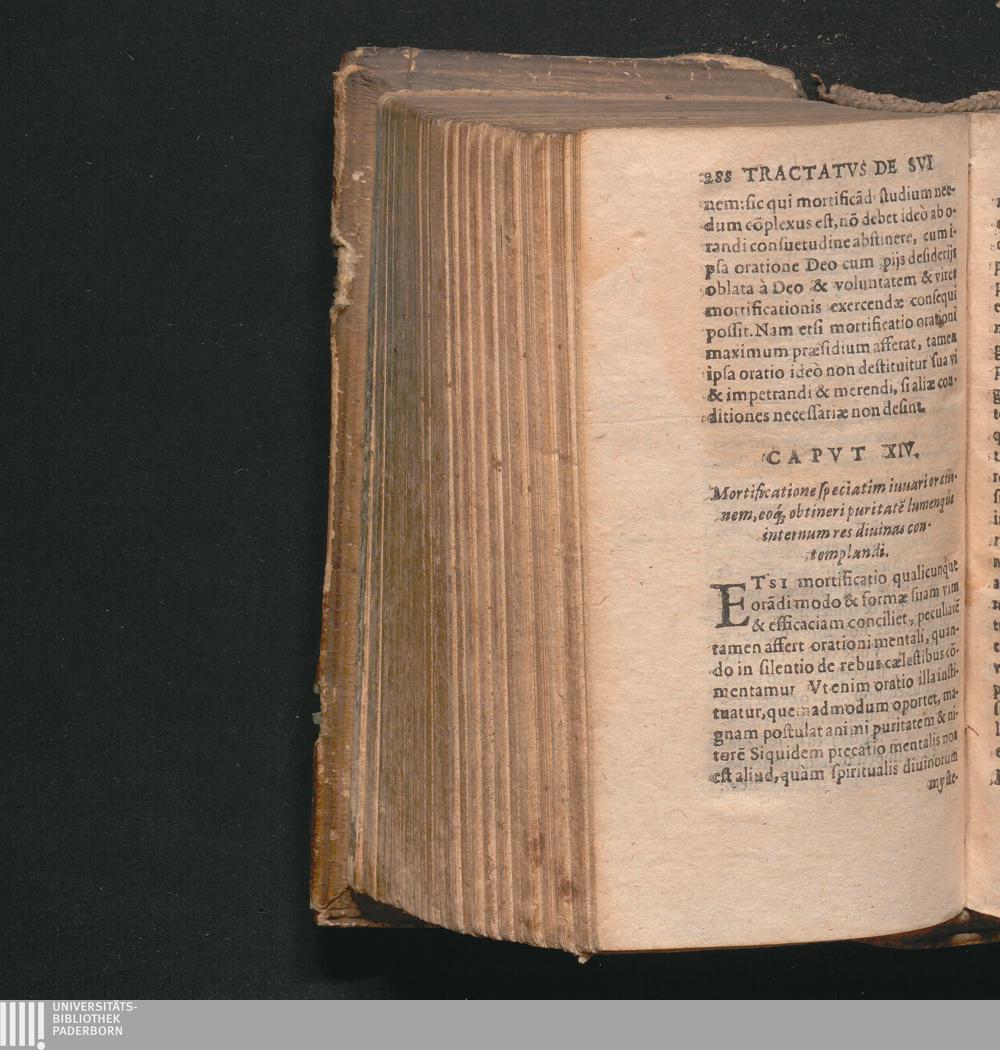 288 TRACTATVS DE SVI
nem: sic qui mortificãd studium nec-
dum cõplexus est, nõ debet ideò ab o-
randi consuetudine abstinere, cum i-
psa oratione Deo cum pijs desiderijs
oblata à Deo & voluntatem & vires
mortificationis exercendæ consequi
possit. Nam etsi mortificatio orationi
maximum præsidium afferat, tamen
ipsa oratio ideò non destituitur sua vi
& impetrandi & merendi, si aliæ con-
ditiones necessariæ non desint.
CAPVT XIV.
Mortificatione speciatim iuuari oratio-
nem, eoq; obtineri puritatẽ lumenque
internum res diuinas con-
templandi.
ETSI mortificatio qualicunque
orãdi modo & formæ suam vim
& efficaciam conciliet, peculiarẽ
tamen affert orationi mentali, quan-
do in silentio de rebus cælestibus cõ-
mentamur Vt enim oratio illa insti-
tuatur, quemadmodum oportet, ma-
gnam postulat animi puritatem & ni-
torẽ Siquidem precatio mentalis non
est aliud, quàm spiritualis diuinorum
myste-
UNIVERSITÄTS-
BIBLIOTHEK
PADERBORN